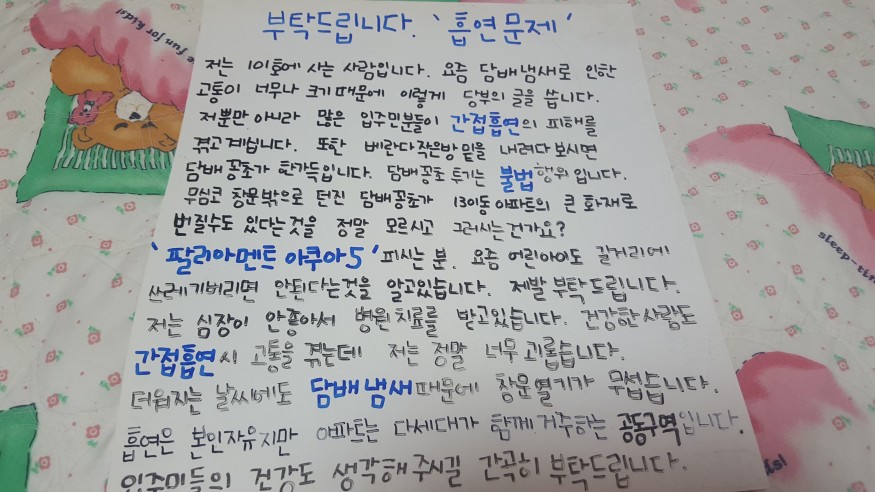 부탁드립니다. '흡연문제'
저는 101호에 사는 사람입니다. 요즘 담배냄새로 인한
고통이 너무나 크기때문에 이렇게 당부의 글을 씁니다.
저뿐만 아니라 많은 입주민분들이 간접흡연의 피해를
겪고계십니다. 또한 베란다작은방 밑을 내려다보시면
담배꽁초가 한가득입니다. 담배꽁초투기는 불법행위입니다.
무심코 창문밖으로 던진 담배꽁초가 1301동아파트의 큰 화재로
번질수도 있다는것을 정말 모르시고 그러시는건가요?
'팔리아멘트 아쿠아5' 피시는 분. 요즘 어린아이도 길거리에
쓰레기버리면 안된다는것을 알고있습니다. 제발 부탁드립니다.
저는 심장이 안좋아서 병원치료를 받고있습니다. 건강한사람도
간접흡연시 고통을 겪는데 저는 정말 너무 괴롭습니다.
더워지는 날씨에도 담배냄새때문에 창문열기가 무섭습니다.
흡연은 본인자유지만 아파트는 다세대가 함께 거주하는 공동구역입니다.
입주민들의 건강도 생각해주시길 간곡히 부탁드립니다.
e fun for kids!
sleep-tim